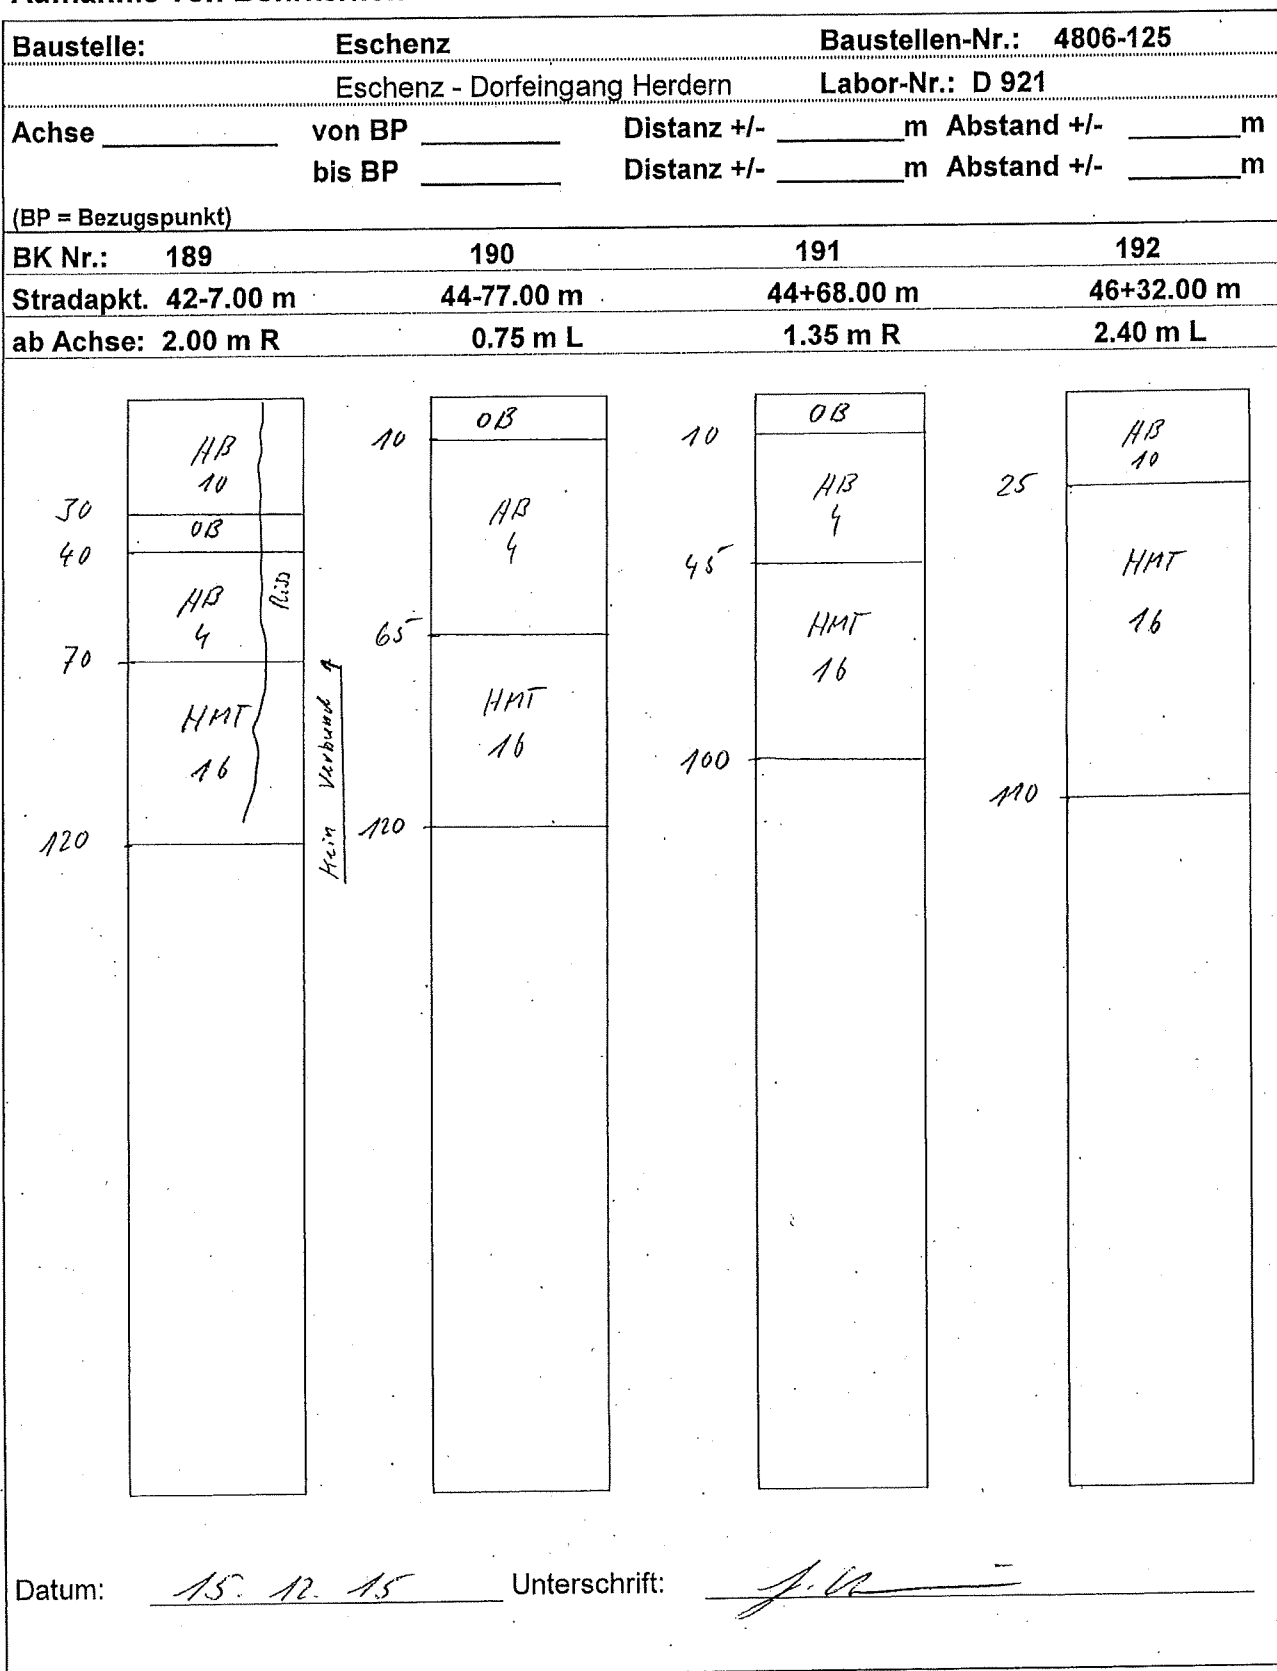 Baustelle: Eschenz Baustellen-Nr.: 4806-125
Eschenz - Dorfeingang Herdern Labor-Nr.: D 921
Achse von BP Distanz +/- m Abstand +/- m
bis BP Distanz +/- m Abstand +/- m
(BP = Bezugspunkt)
BK Nr.: 189 190 191 192
Stradapkt. 42-7.00 m 44-77.00 m 44+68.00 m 46+32.00 m
ab Achse: 2.00 m R 0.75 m L 1.35 m R 2.40 m L
AB
10
30
OB
40
AB
4
Riss
70
HMT
16
120
Kein Verbund
OB
10
AB
4
65
HMT
16
120
OB
10
AB
4
45
HMT
16
100
AB
10
25
HMT
16
110
Datum: 15. 12. 15 Unterschrift: